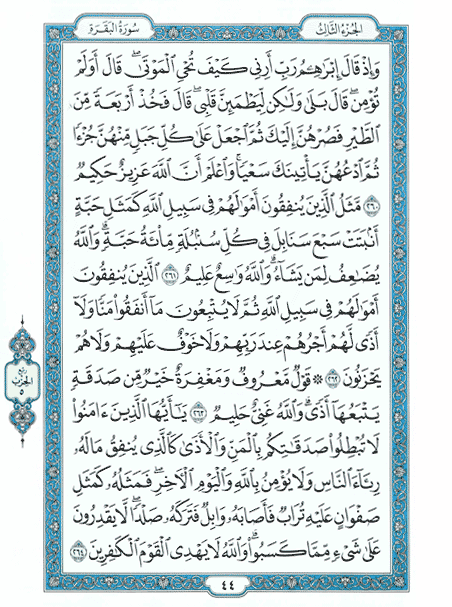 الجُزْءُ الثَّالِثُ
سُورَةُ البَقَرَةِ
وَإِذْ قَالَ إِبْرَٰهِـۧمُ رَبِّ أَرِنِى كَيْفَ تُحْىِ الْمَوْتَىٰ ۖ قَالَ أَوَلَمْ
تُؤْمِن ۖ قَالَ بَلَىٰ وَلَٰكِن لِّيَطْمَئِنَّ قَلْبِى ۖ قَالَ فَخُذْ أَرْبَعَةً مِّنَ
الطَّيْرِ فَصُرْهُنَّ إِلَيْكَ ثُمَّ اجْعَلْ عَلَىٰ كُلِّ جَبَلٍ مِّنْهُنَّ جُزْءًا
ثُمَّ ادْعُهُنَّ يَأْتِينَكَ سَعْيًا ۚ وَاعْلَمْ أَنَّ اللَّهَ عَزِيزٌ حَكِيمٌ
٢٦٠ مَّثَلُ الَّذِينَ يُنفِقُونَ أَمْوَٰلَهُمْ فِى سَبِيلِ اللَّهِ كَمَثَلِ حَبَّةٍ
أَنۢبَتَتْ سَبْعَ سَنَابِلَ فِى كُلِّ سُنۢبُلَةٍ مِّا۟ئَةُ حَبَّةٍ ۗ وَاللَّهُ
يُضَٰعِفُ لِمَن يَشَآءُ ۗ وَاللَّهُ وَٰسِعٌ عَلِيمٌ ٢٦١ الَّذِينَ يُنفِقُونَ
أَمْوَٰلَهُمْ فِى سَبِيلِ اللَّهِ ثُمَّ لَا يُتْبِعُونَ مَآ أَنفَقُوا۟ مَنًّا وَلَآ
أَذًى ۙ لَّهُمْ أَجْرُهُمْ عِندَ رَبِّهِمْ وَلَا خَوْفٌ عَلَيْهِمْ وَلَا هُمْ
يَحْزَنُونَ ٢٦٢ ۞ قَوْلٌ مَّعْرُوفٌ وَمَغْفِرَةٌ خَيْرٌ مِّن صَدَقَةٍ
يَتْبَعُهَآ أَذًى ۗ وَاللَّهُ غَنِىٌّ حَلِيمٌ ٢٦٣ يَٰٓأَيُّهَا الَّذِينَ ءَامَنُوا۟
لَا تُبْطِلُوا۟ صَدَقَٰتِكُم بِالْمَنِّ وَالْأَذَىٰ كَالَّذِى يُنفِقُ مَالَهُۥ
رِئَآءَ النَّاسِ وَلَا يُؤْمِنُ بِاللَّهِ وَالْيَوْمِ الْءَاخِرِ ۖ فَمَثَلُهُۥ كَمَثَلِ
صَفْوَانٍ عَلَيْهِ تُرَابٌ فَأَصَابَهُۥ وَابِلٌ فَتَرَكَهُۥ صَلْدًا ۖ لَّا يَقْدِرُونَ
عَلَىٰ شَىْءٍ مِّمَّا كَسَبُوا۟ ۗ وَاللَّهُ لَا يَهْدِى الْقَوْمَ الْكَٰفِرِينَ ٢٦٤
ربع
الحزب
٥
٤٤